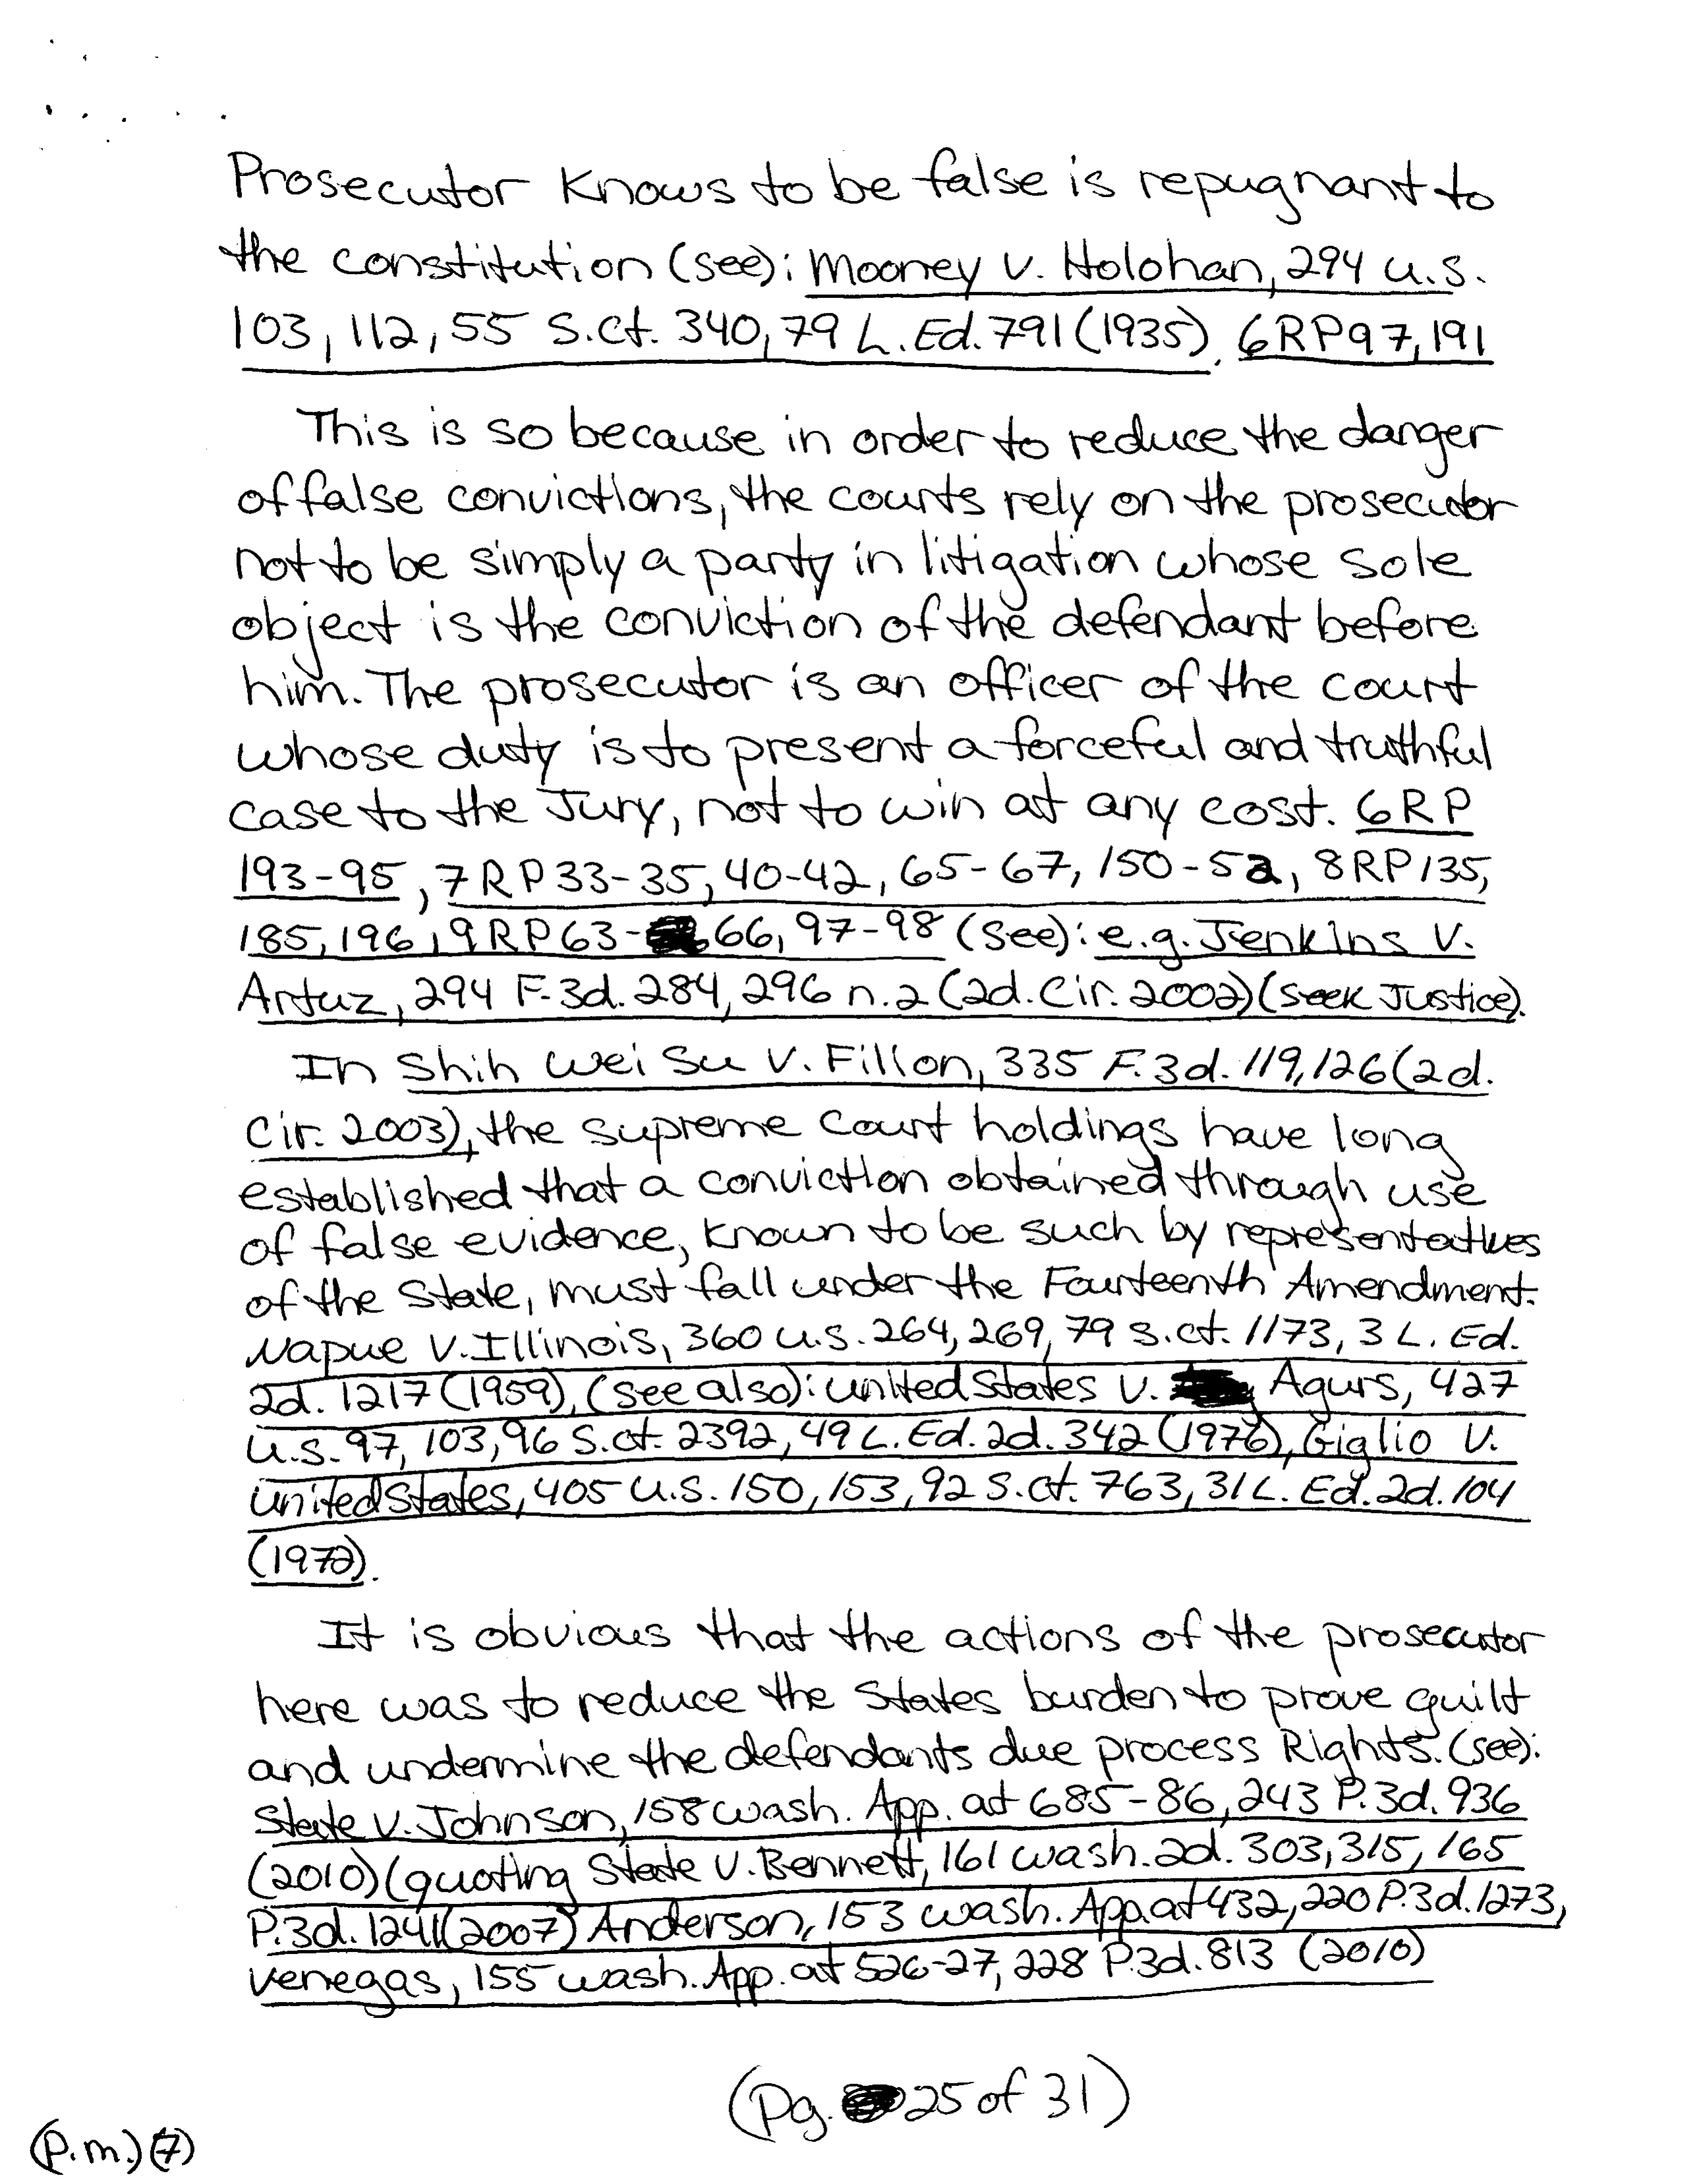 Prosecutor Knows to be false is repugnant to
the constitution (see): Mooney v. Holohan, 294 u.s.
103, 112, 55 S.ct. 340, 79 L. Ed. 791 (1935). 6RP97, 191
This is so because in order to reduce the danger
of false convictions, the courts rely on the prosecutor
not to be simply a party in litigation whose sole
object is the conviction of the defendant before
him. The prosecutor is an officer of the court
whose duty is to present a forceful and truthful
case to the Jury, not to win at any cost. 6RP
193-95, 7RP33-35, 40-42, 65-67, 150-52, 8RP135,
185, 196, 9RP63-66, 97-98 (see): e.g. Jenkins v.
Artuz, 294 F.3d. 284, 296 n.2 (2d. Cir. 2002) (seek Justice).
In Shih Wei Su v. Fillon, 335 F.3d. 119, 126 (2d.
Cir. 2003), the supreme Court holdings have long
established that a conviction obtained through use
of false evidence, known to be such by representatives
of the State, must fall under the Fourteenth Amendment.
Napue v. Illinois, 360 u.s. 264, 269, 79 s.ct. 1173, 3 L. Ed.
2d. 1217 (1959), (see also): united States v. Agurs, 427
u.s. 97, 103, 96 S.ct. 2392, 49 L. Ed. 2d. 342 (1976), Giglio v.
united States, 405 u.s. 150, 153, 92 S.ct. 763, 31 L. Ed. 2d. 104
(1972).
It is obvious that the actions of the prosecutor
here was to reduce the States burden to prove guilt
and undermine the defendants due process Rights. (see):
State v. Johnson, 158 wash. App. at 685-86, 243 P.3d. 936
(2010) (quoting State v. Bennett, 161 wash. 2d. 303, 315, 165
P.3d. 1241 (2007) Anderson, 153 wash. App. at 432, 220 P.3d. 1273,
Venegas, 155 wash. App. at 526-27, 228 P.3d. 813 (2010)
(Pg. 25 of 31)
(P.m.) (7)